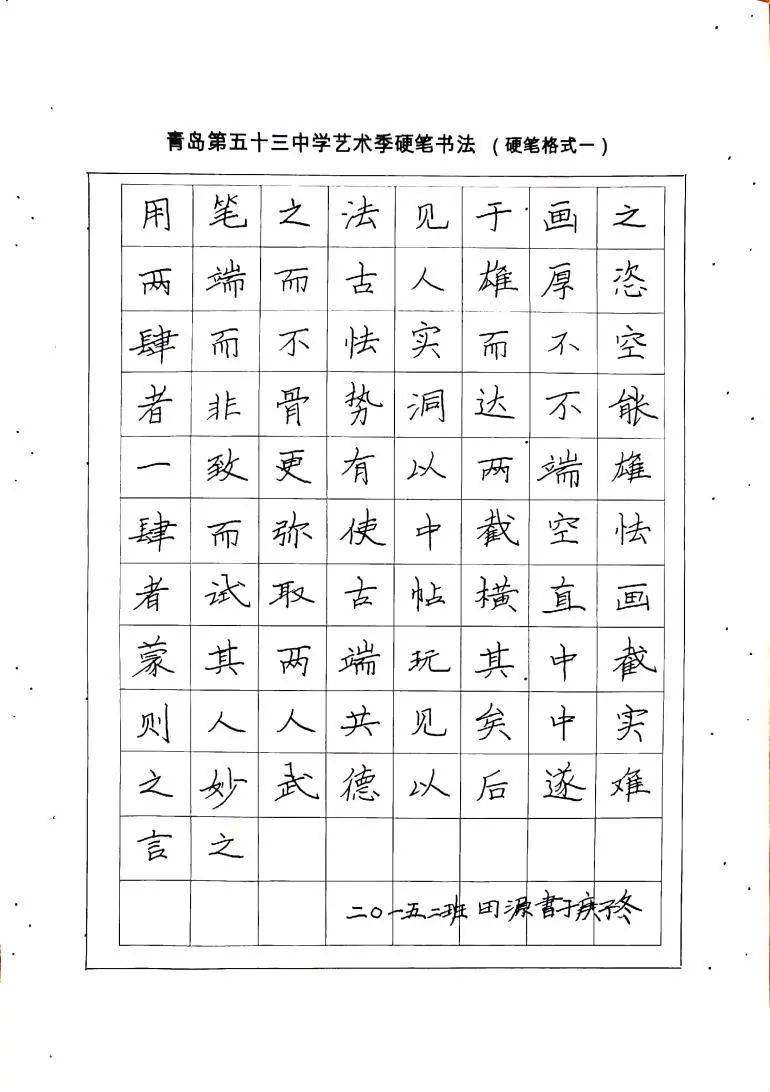 青岛第五十三中学艺术季硬笔书法 （硬笔格式一）
用笔之法见于画之
两端而古人雄厚恣
肆而不怯实而不空
者非骨势洞达不能
一致更有以两端雄
肆而弥使中截空怯
者试取古帖横直画
蒙其两端玩其中截
则人人共见矣中实
之妙武德以后遂难
言之
二〇一五二班田源書于庚子冬